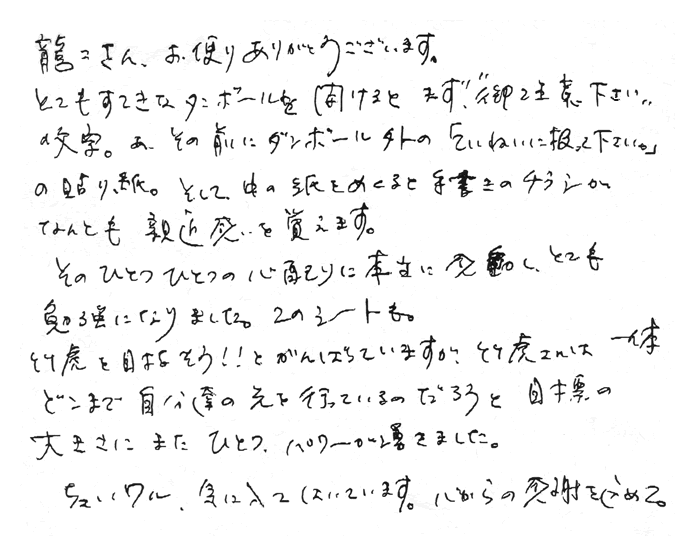 さん、お便りありがとうございます。
とてもすてきなダンボールを開けるとまず、"御注意下さい"
の文字。あ、その前にダンボール外の「ていねいに扱って下さい。」
の貼り紙。そして、中の紙をめくると手書きのチラシが
なんとも親近感を覚えます。
そのひとつひとつの心配りに本当に感動し、とても
勉強になりました。このシートも。
竹虎を目指そう!!とがんばっていますが、竹虎さんは一体
どこまで自分達の先を行っているのだろうと目標の
大きさにまたひとつ、パワーが湧きました。
ちょいワル、気に入ってはいています。心からの感謝を込めて。